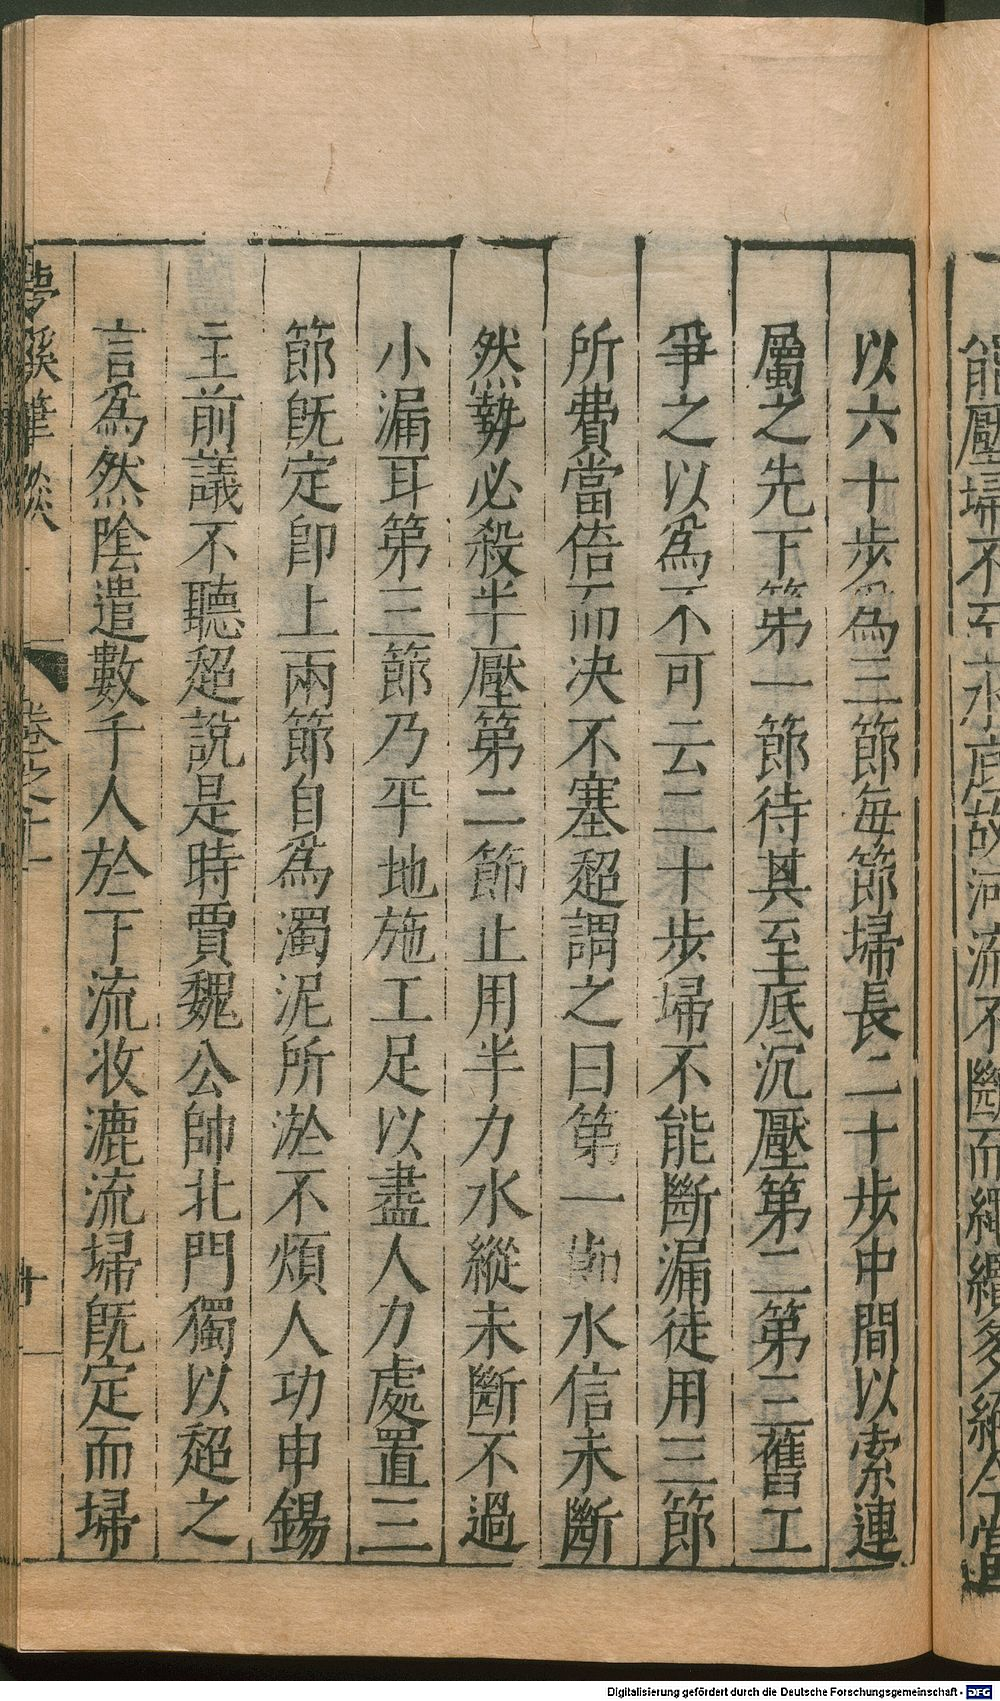 能壓埽不至水底故河流不斷而繩纜多絕今當
以六十步爲三節每節埽長二十步中間以索連
屬之先下第一節待其至底沉壓第二第三舊工
爭之以爲不可云二十步埽不能斷漏徒用三節
所費當倍而决不塞超謂之曰第一節水信未斷
然勢必殺半壓第二節止用半力水縱未斷不過
小漏耳第三節乃平地施工足以盡人力處置三
節旣定卽上兩節自爲濁泥所淤不煩人功申錫
主前議不聽超說是時賈魏公帥北門獨以超之
言爲然陰遣數千人於下流收漉流埽旣定而埽
夢溪筆談 卷之十一 十
Digitalisierung gefördert durch die Deutsche Forschungsgemeinschaft - DFG